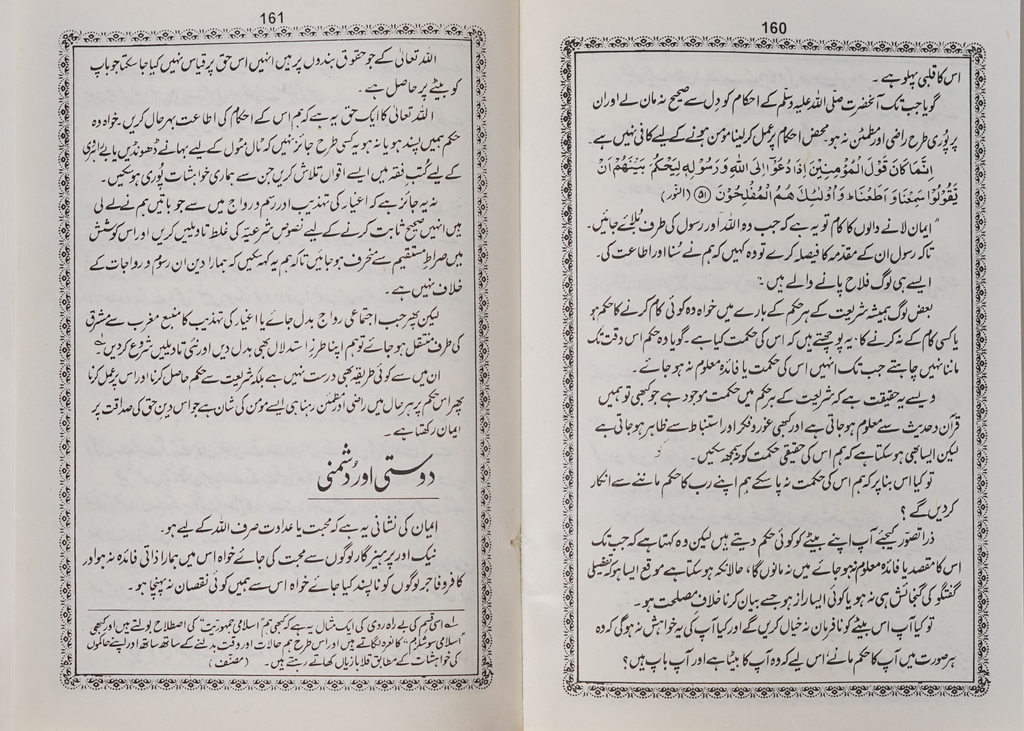 160
اس کا قلبی پہلو ہے۔
گویا جب تک آنحضرت صلی اللہ علیہ وسلم کے احکام کو دل سے صحیح نہ مان لے اور ان
پر پوری طرح راضی اور مطمئن نہ ہو محض احکام پر عمل کر لینا مؤمن بننے کے لیے کافی نہیں ہے۔
اِنَّمَا كَانَ قَوْلَ الْمُؤْمِنِيْنَ اِذَا دُعُوْٓا اِلَى اللّٰهِ وَرَسُوْلِهٖ لِيَحْكُمَ بَيْنَهُمْ اَنْ
يَّقُوْلُوْا سَمِعْنَا وَ اَطَعْنَا ؕ وَاُولٰٓئِكَ هُمُ الْمُفْلِحُوْنَ ﴿۵۱﴾ (النور)
"ایمان لانے والوں کا کام تو یہ ہے کہ جب وہ اللہ اور رسول کی طرف بلائے جائیں۔
تاکہ رسول ان کے مقدمہ کا فیصلہ کرے تو وہ کہیں کہ ہم نے سنا اور اطاعت کی۔
ایسے ہی لوگ فلاح پانے والے ہیں"۔
بعض لوگ ہمیشہ شریعت کے ہر حکم کے بارے میں خواہ وہ کوئی کام کرنے کا حکم ہو
یا کسی کام کے نہ کرنے کا۔ یہ پوچھتے ہیں کہ اس کی حکمت کیا ہے۔ گویا وہ حکم اس وقت تک
ماننا نہیں چاہتے جب تک انہیں اس کی حکمت یا فائدہ معلوم نہ ہو جائے۔
ویسے یہ حقیقت ہے کہ شریعت کے ہر حکم میں حکمت موجود ہے جو کبھی تو ہمیں
قرآن و حدیث سے معلوم ہو جاتی ہے اور کبھی غور و فکر اور استنباط سے ظاہر ہو جاتی ہے
لیکن ایسا بھی ہو سکتا ہے کہ ہم اس کی حقیقی حکمت کو نہ سمجھ سکیں۔
تو کیا اس بنا پر کہ ہم اس کی حکمت نہ پا سکے ہم اپنے رب کا حکم ماننے سے انکار
کر دیں گے؟
ذرا تصور کیجئے آپ اپنے بیٹے کو کوئی حکم دیتے ہیں لیکن وہ کہتا ہے کہ جب تک
اس کا مقصد یا فائدہ معلوم نہ ہو جائے میں نہ مانوں گا، حالانکہ ہو سکتا ہے موقع ایسا ہو تفصیلی
گفتگو کی گنجائش ہی نہ ہو یا کوئی ایسا راز ہو جسے بیان کرنا خلاف مصلحت ہو۔
تو کیا آپ اس بیٹے کو نافرمان نہ خیال کریں گے اور کیا آپ کی یہ خواہش نہ ہوگی کہ وہ
ہر صورت میں آپ کا حکم مانے؛ اس لیے کہ وہ آپ کا بیٹا ہے اور آپ باپ ہیں؟
161
اللہ تعالیٰ کے جو حقوق بندوں پر ہیں انہیں اس حق پر قیاس نہیں کیا جا سکتا جو باپ
کو بیٹے پر حاصل ہے۔
اللہ تعالیٰ کا ایک حق یہ ہے کہ ہم اس کے احکام کی اطاعت بہر حال کریں۔ خواہ وہ
حکم ہمیں پسند ہو یا نہ ہو یہ کسی طرح جائز نہیں کہ ٹال مٹول کے لیے بہانے ڈھونڈیں یا بے اثری
کے لیے کتب فقہ میں ایسے اقوال تلاش کریں جن سے ہماری خواہشات پوری ہو سکیں۔
نہ یہ جائز ہے کہ اغیار کی تہذیب اور رسم و رواج میں سے جو باتیں ہم نے لے لی
ہیں انہیں صحیح ثابت کرنے کے لیے نصوص شرعیہ کی غلط تاویلیں کریں اور اس کوشش
میں صراط مستقیم سے منحرف ہو جائیں تاکہ ہم یہ کہہ سکیں کہ ہمارا دین ان رسوم و رواجات کے
خلاف نہیں ہے۔
لیکن پھر جب اجتماعی رواج بدل جائے یا اغیار کی تہذیب کا منبع مغرب سے مشرق
کی طرف منتقل ہو جائے تو ہم اپنا طرز استدلال بھی بدل دیں اور نئی تاویلیں شروع کر دیں۔
ان میں سے کوئی طریقہ بھی درست نہیں ہے بلکہ شریعت سے حکم حاصل کرنا اور اس پر عمل کرنا
پھر اس حکم پر ہر حال میں راضی اور مطمئن رہنا ہی ایسے مؤمن کی شان ہے جو اس دین حق کی صداقت پر
ایمان رکھتا ہے۔
دوستی اور دشمنی
ایمان کی نشانی یہ ہے کہ محبت یا عداوت صرف اللہ کے لیے ہو۔
نیک اور پرہیز گار لوگوں سے محبت کی جائے خواہ اس میں ہمارا ذاتی فائدہ نہ ہو اور
کافر و فاجر لوگوں کو ناپسند کیا جائے خواہ اس سے ہمیں کوئی نقصان نہ پہنچا ہو۔
لہ اسی قسم کی بے راہ روی کی ایک مثال یہ ہے کہ کبھی ہم "اسلامی جمہوریت" کی اصطلاح بولتے ہیں اور کبھی
"اسلامی سوشلزم" کا نعرہ لگاتے ہیں اور اس طرح ہم حالات اور وقت بدلنے کے ساتھ ساتھ اور اپنے حاکموں
کی خواہشات کے مطابق قلابازیاں کھاتے رہتے ہیں۔ (مصنف)